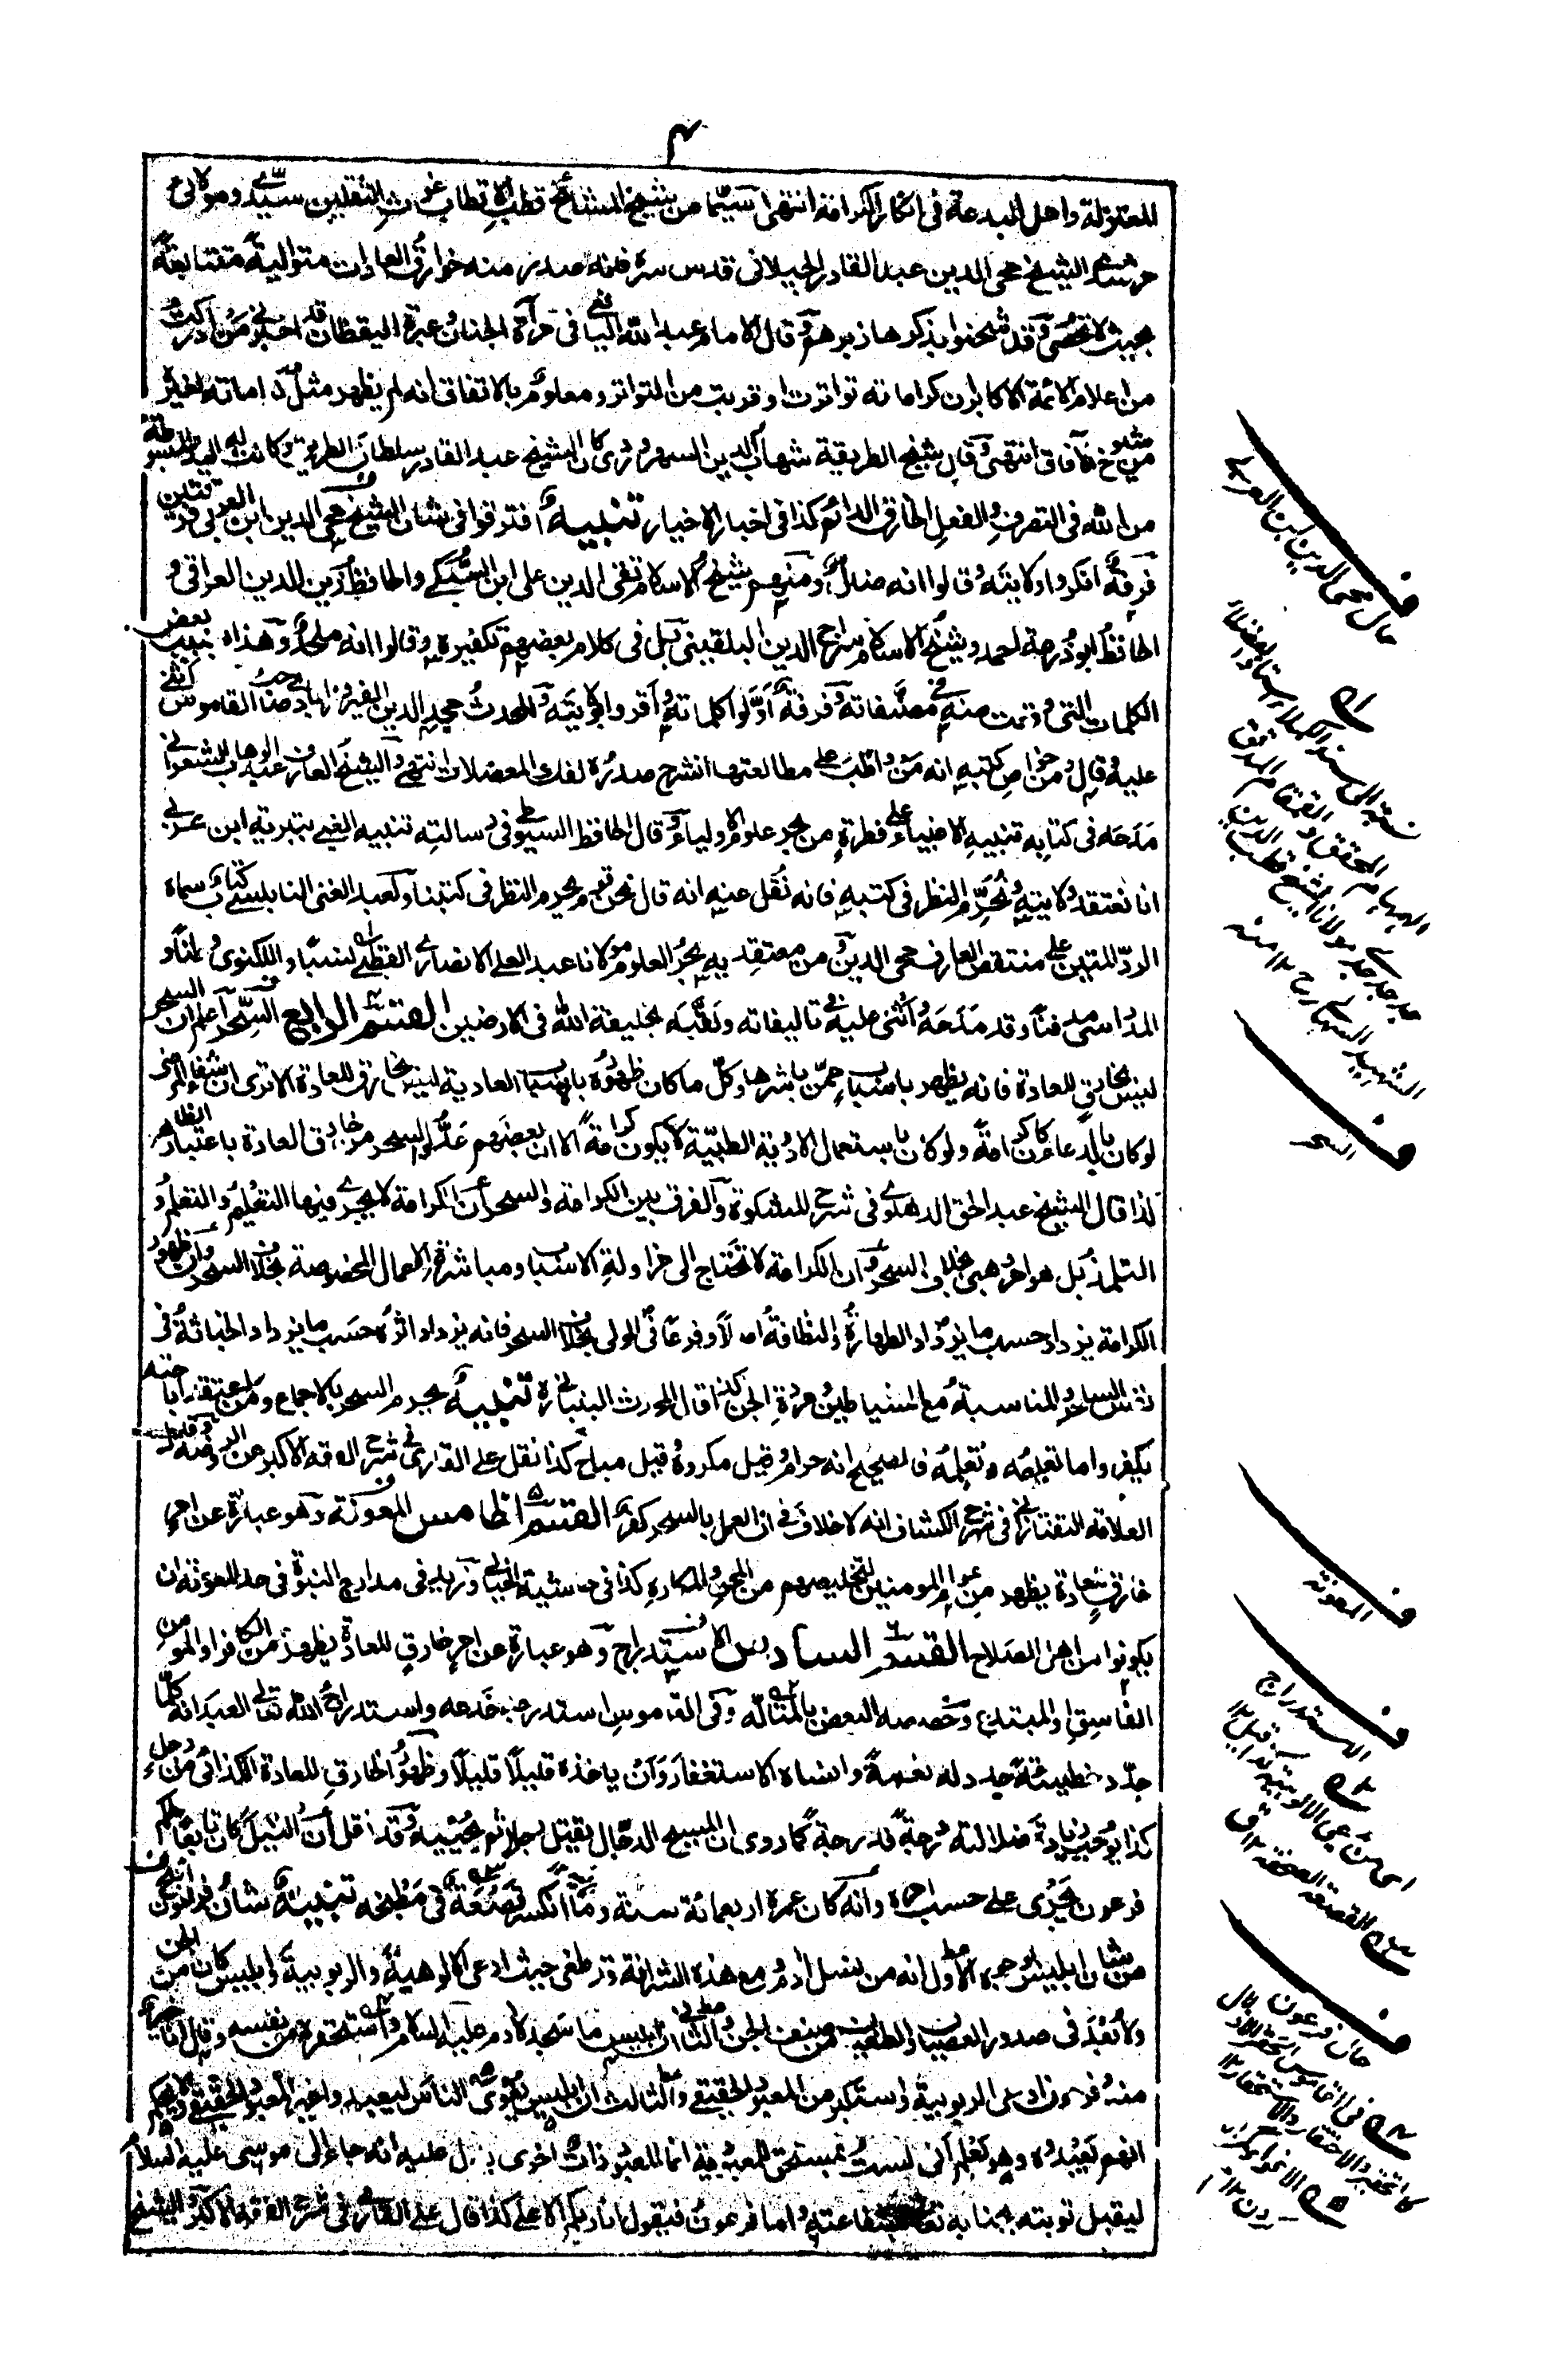 ۴
للمعتزلة واهل البدعة فى انكار الكرامة انتهى سيما من شيخ المشائخ قطب الاقطاب غوث الثقلين سيدى ومولائى
مرشدى الشيخ محى الدين عبد القادر الجيلانى قدس سره فانه صدر منه خوارق العادات متوالية متتابعة
بحيث لا تحصى وقد شحنوا بذكرها زبرهم وقال الامام عبد الله اليافعى فى مرآة الجنان وعبرة اليقظان قد اخبرنى من ادركت
من اعلام الائمة الاكابر ان كراماته تواترت او قربت من التواتر ومعلوم بالاتفاق انه لم يظهر مثل كراماته لغيره
من شيوخ الآفاق انتهى وقال شيخ الطريقة شهاب الدين السهروردى كان الشيخ عبد القادر سلطان الطريق وكانت له اليد المبسوطة
من الله فى التصرف والفعل الخارق الدائم كذا فى اخبار الاخيار تنبيه افترقوا فى شان الشيخ محى الدين ابن العربى فرقتين
فرقة انكروا ولايته وقالوا انه ضال ومنهم شيخ الاسلام تقى الدين على ابن السبكى والحافظ زين الدين العراقى و
الحافظ ابو زرعة احمد وشيخ الاسلام سراج الدين البلقينى بل فى كلام بعضهم تكفيره وقالوا انه ملحد وهذا بسبب بعض
الكلمات التى وقعت منه فى مصنفاته وفرقة اولوا كلماته واقروا بولايته والمحدث مجد الدين الفيروزابادى صاحب القاموس اثنى
عليه وقال ومن خواص كتبه انه من واظب على مطالعتها انشرح صدره لفك المعضلات انتهى والشيخ العارف عبد الوهاب الشعرانى
مدحه فى كتابه تنبيه الاغبياء على قطرة من بحر علوم الاولياء وقال الحافظ السيوطى فى رسالته تنبيه الغبى بتبرئة ابن عربى
انا نعتقد ولايته ونحرم النظر فى كتبه فانه نقل عنه انه قال نحن قوم يحرم النظر فى كتبنا ولعبد الغنى النابلسى كتاب سماه
الرد المتين على منتقص العارف محى الدين ومن معتقديه بحر العلوم مولانا عبد العلى الانصارى القطبى نسبا واللكنوى وطنا و
المدراسى مدفنا وقد مدحه واثنى عليه فى تاليفاته ولقبه بخليفة الله فى الارضين القسم الرابع السحر اعلم ان السحر
ليس بخارق للعادة فانه يظهر باسباب من باشرها وكل ما كان ظهوره باسباب العادية ليس بخارق للعادة الا ترى ان شفاء المرضى
لو كان بالدعاء كان كرامة ولو كان باستعمال الادوية الطبية لا يكون كرامة الا ان بعضهم عدوا السحر من خارق العادة باعتبار الظاهر
لذا قال الشيخ عبد الحق الدهلوى فى شرح المشكوة والفرق بين الكرامة والسحر ان الكرامة لا يجرى فيها التعليم والتعلم و
التلمذ بل هو امر وهبى بخلاف السحر وان الكرامة لا تحتاج الى مزاولة الاسباب ومباشرة الاعمال المخصوصة بخلاف السحر وان ظهور
الكرامة يزداد حسب ما يزداد الطهارة والنظافة اصلا وفرعا فى الولى بخلاف السحر فانه يزداد اثره حسب ما يزداد الخباثة فى
نفس الساحر والمناسبة مع الشياطين ومردة الجن كذا قال المحدث البنبانى تنبيه يحرم السحر بالاجماع ومن اعتقد اباحته
يكفر واما تعليمه وتعلمه فالصحيح انه حرام وقيل مكروه وقيل مباح كذا نقل على القارى فى شرح الفقه الاكبر عن الروضة وقال
العلامة التفتازانى فى شرح الكشاف انه لا خلاف فى ان العمل بالسحر كفر القسم الخامس المعونة وهو عبارة عن امر
خارق عادة يظهر من عوام المومنين لتخليصهم من المحن والمكاره كذا فى حاشية الخيالى وزيد فى مدارج النبوة فى حد المعونة ان
يكونوا من اهل الصلاح القسم السادس الاستدراج وهو عبارة عن امر خارق للعادة يظهر من الكافر او المومن
الفاسق او المبتدع وخصصه البعض بالمتاله وفى القاموس استدرجه خدعه واستدراج الله تعالى العبد انه كلما
جدد خطيئة جدد له نعمة وانساه الاستغفار وان ياخذه قليلا قليلا وظهور الخارق للعادة الكذائى من رجل
كذا يوجب زيادة ضلالته درجة فدرجة كما روى ان المسيح الدجال يقتل رجلا ثم يحييه وقد نقل ان النيل كان تابعا لحكم
فرعون يجرى على حسب امره وانه كان عمره اربعمائة سنة وما انكسر قصعة فى مطبخه تنبيه شان فرعون اقبح
من شان ابليس لوجوه الاول انه من نسل آدم ومع هذه الشرافة قد طغى حيث ادعى الالوهية والربوبية وابليس كان من الجن
ولا بعد فى صدور العصيان والطغيان من صنف الجن والثانى ان ابليس ما سجد لآدم عليه السلام واستحقره من نفسه وقال انا خير
منه وفرعون ادعى الربوبية واستكبر من المعبود الحقيقى والثالث ان ابليس يغوى الناس ليعبدوا غير المعبود الحقيقى ولا يحكم
انهم يعبدوه وهو يعلم انى لست بمستحق للمعبودية انما المعبود ذات اخرى يدل عليه انه جاء الى موسى عليه السلام
ليقبل توبته بجنابه تعالى بشفاعته واما فرعون فيقول انا ربكم الاعلى كذا قال على القارى فى شرح الفقه الاكبر والشيخ
حال محى الدين ابن العربى
السحر
المعونة
الاستدراج
حال فرعون